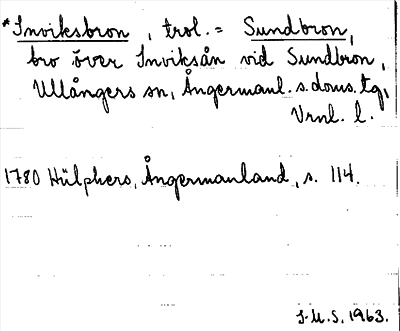 *Inviksbron, trol. = Sundbron,
bro över Inviksån vid Sundbron,
Ullångers sn, Ångermanl. s. doms. tg,
Vrnl. l.
1780 Hülphers, Ångermanland, s. 114.
J.M.S. 1963.